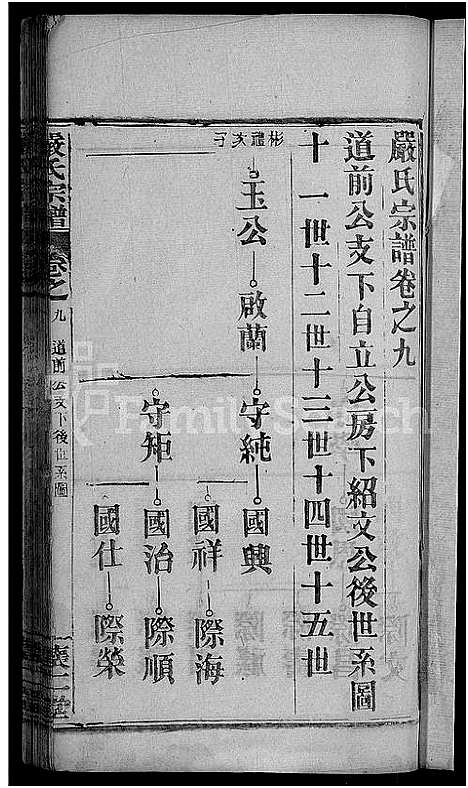 嚴氏宗譜卷之九
道前公支下自立公房下紹文公後世系圖
十一世十二世十三世十四世十五世
彬禮次子
玉公 啟蘭 守純 國興
國祥 際海
守矩 國治 際順
國仕 際榮
嚴氏宗譜 卷之九 道前公支下後世系圖
FamilySearch